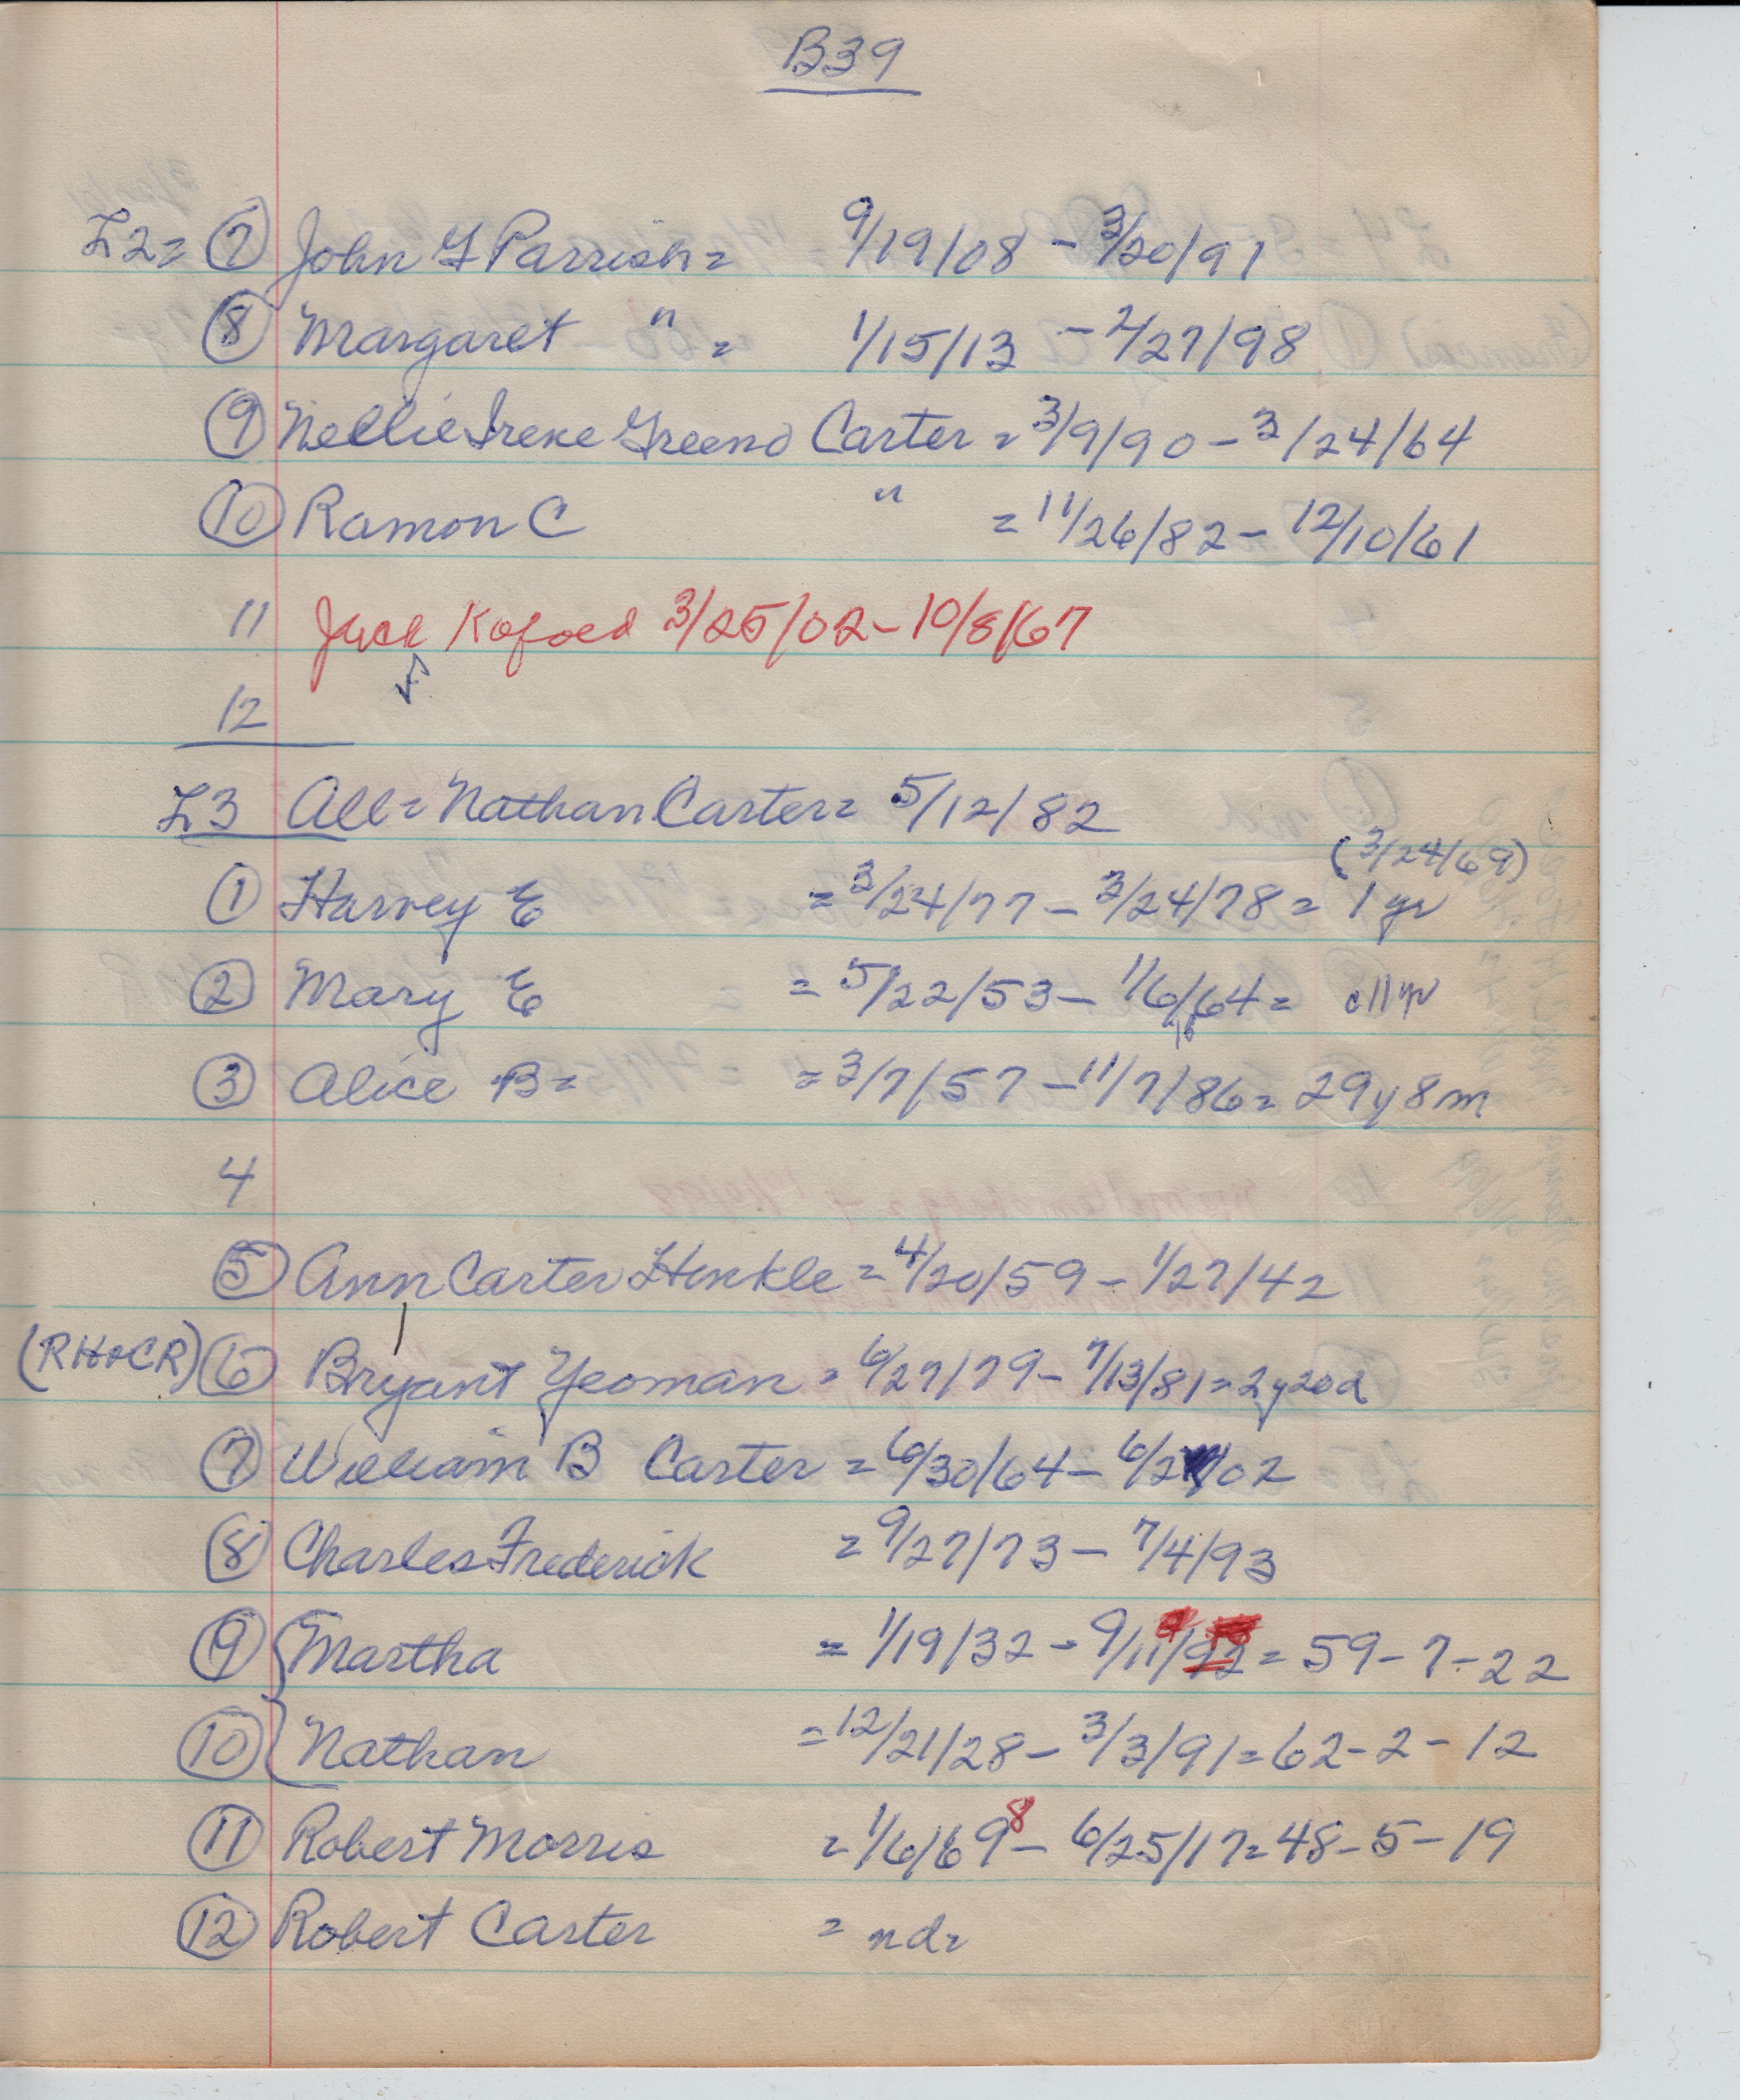 B39
L2= 7 John G Parrish = 9/19/08 - 3/20/91
8 Margaret " = 1/15/13 - 2/27/98
9 Nellie Irene Greeno Carter = 3/9/90 - 3/24/64
10 Ramon C " = 11/26/82 - 12/10/61
11 Jack Kofoed 3/25/02 - 10/8/67
12
L3 All = Nathan Carter = 5/12/82
(3/24/69)
1 Harvey E = 3/24/77 - 3/24/78 = 1 yr
2 Mary E = 5/22/53 - 1/6/64 = c11yr
3 Alice B = = 3/7/57 - 11/7/86 = 29y8m
4
5 Ann Carter Henkle = 4/20/59 - 1/27/42
(RHofCR) 6 Bryant Yeoman = 6/27/79 - 7/13/81 = 2y20d
7 William B Carter = 6/30/64 - 6/2 /02
8 Charles Frederick = 9/27/73 - 7/4/93
9 Martha = 1/19/32 - 9/11/92 = 59-7-22
10 Nathan = 12/21/28 - 3/3/91 = 62-2-12
11 Robert Morris = 1/6/69 8 - 6/25/17 = 48-5-19
12 Robert Carter = nd=